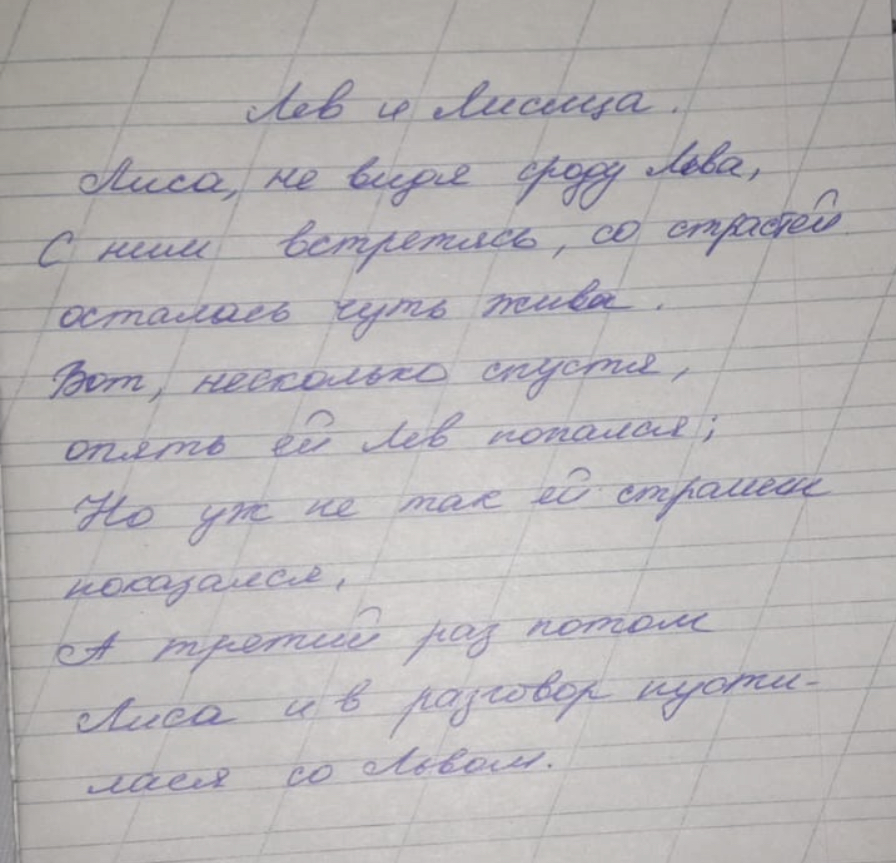 Лев и Лисица.
Лиса, не видя сроду Льва,
С ним встретясь, со страстей
осталась чуть жива.
Вот, несколько спустя,
опять ей Лев попался;
Но уж не так ей страшен
показался.
А третий раз потом
Лиса и в разговор пусти-
лася со Львом.